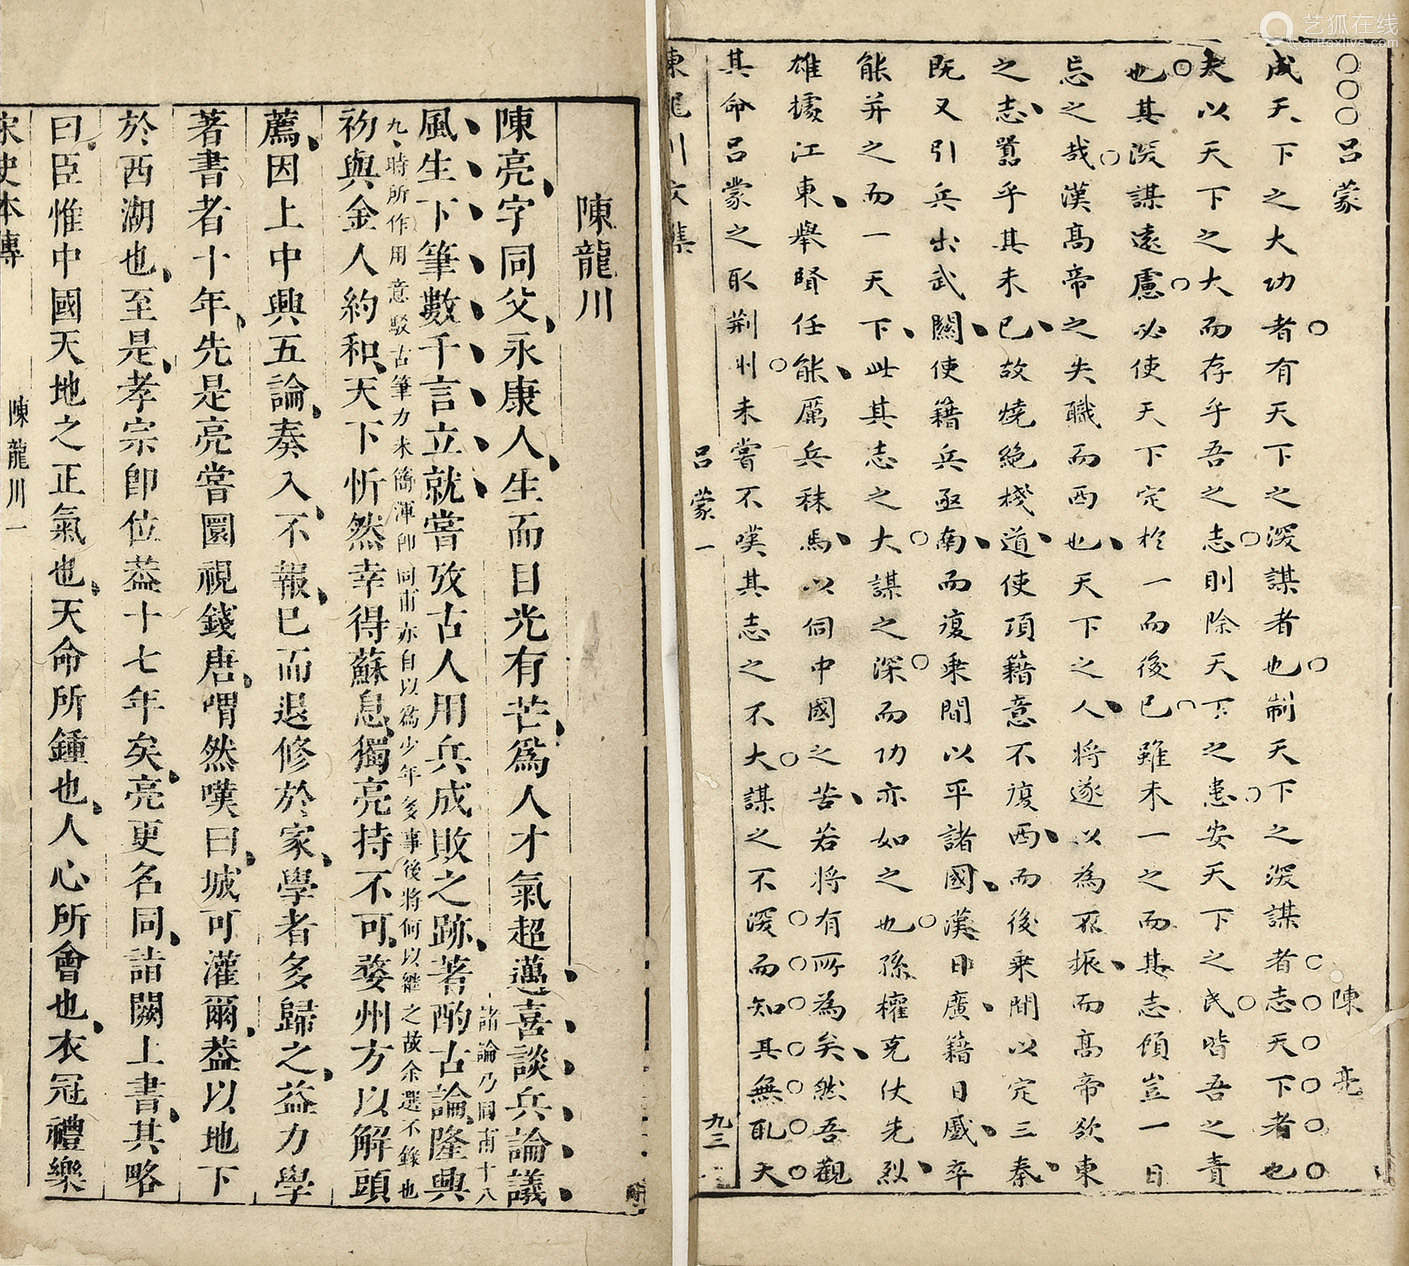 艺狐在线
artfoxlive.com
○○○呂蒙
陳亮
成天下之大功者有天下之深謀者也制天下之深謀者志天下者也
夫以天下之大而存乎吾之志則除天下之患安天下之民皆吾之責
也其深謀遠慮必使天下定於一而後已雖未一之而其志傾豈一日
忘之哉漢高帝之失職而西也天下之人將遂以為不振而高帝欲東
之志囂乎其未已故燒絕棧道使項籍意不復西而後乘間以定三秦
既又引兵出武關使籍兵亟南而復乘間以平諸國漢日廣籍日蹙卒
能并之而一天下此其志之大謀之深而功亦如之也孫權克仗先烈
雄據江東舉賢任能厲兵秣馬以伺中國之苦若將有所為矣然吾觀
其命呂蒙之取荆州未嘗不嘆其志之不大謀之不深而知其無取天
陳龍川文集
呂蒙一
九三
陳龍川
陳亮字同父永康人生而目光有芒為人才氣超邁喜談兵論議
風生下筆數千言立就嘗攷古人用兵成敗之跡著酌古論隆興
諸論乃同甫十八
九時所作用意駁古筆力未簡渾卽同甫亦自以為少年多事後將何以繼之故余選不錄也
初與金人約和天下忻然幸得蘇息獨亮持不可婺州方以解頭
薦因上中興五論奏入不報已而退修於家學者多歸之益力學
著書者十年先是亮嘗圜視錢唐喟然嘆曰城可灌爾葢以地下
於西湖也至是孝宗卽位葢十七年矣亮更名同詣闕上書其略
曰臣惟中國天地之正氣也天命所鍾也人心所會也衣冠禮樂
宋史本傳
陳龍川一